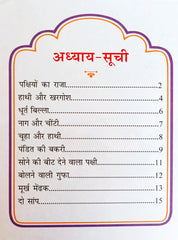 अध्याय-सूची
पक्षियों का राजा........................2
हाथी और खरगोश........................4
धूर्त बिल्ला........................6
नाग और चींटी........................7
चूहा और हाथी........................8
पंडित की बकरी........................9
सोने की बीट देने वाला पक्षी...............11
बोलने वाली गुफा........................12
मूर्ख मेंढक........................13
दो सांप........................15